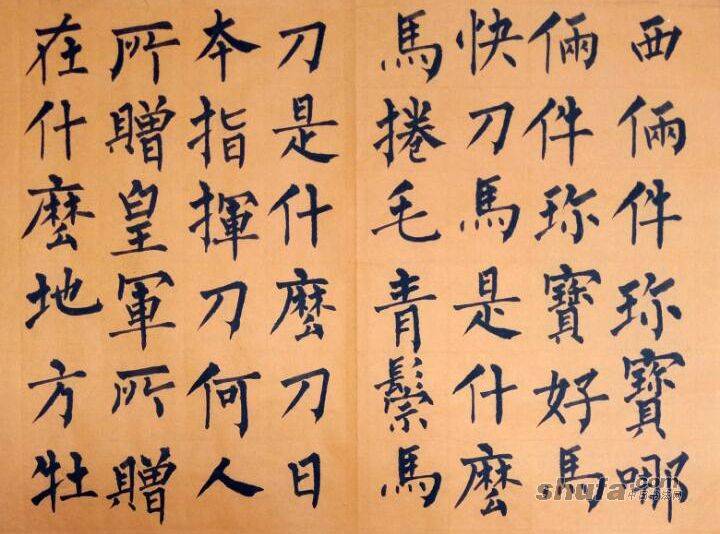 西倆件珎寶哪
倆件珎寶好馬
快刀馬是什麼
馬捲毛青鬃馬
刀是什麼刀日
本指揮刀何人
所贈皇軍所贈
在什麼地方牡
shufa.com
中国书法网